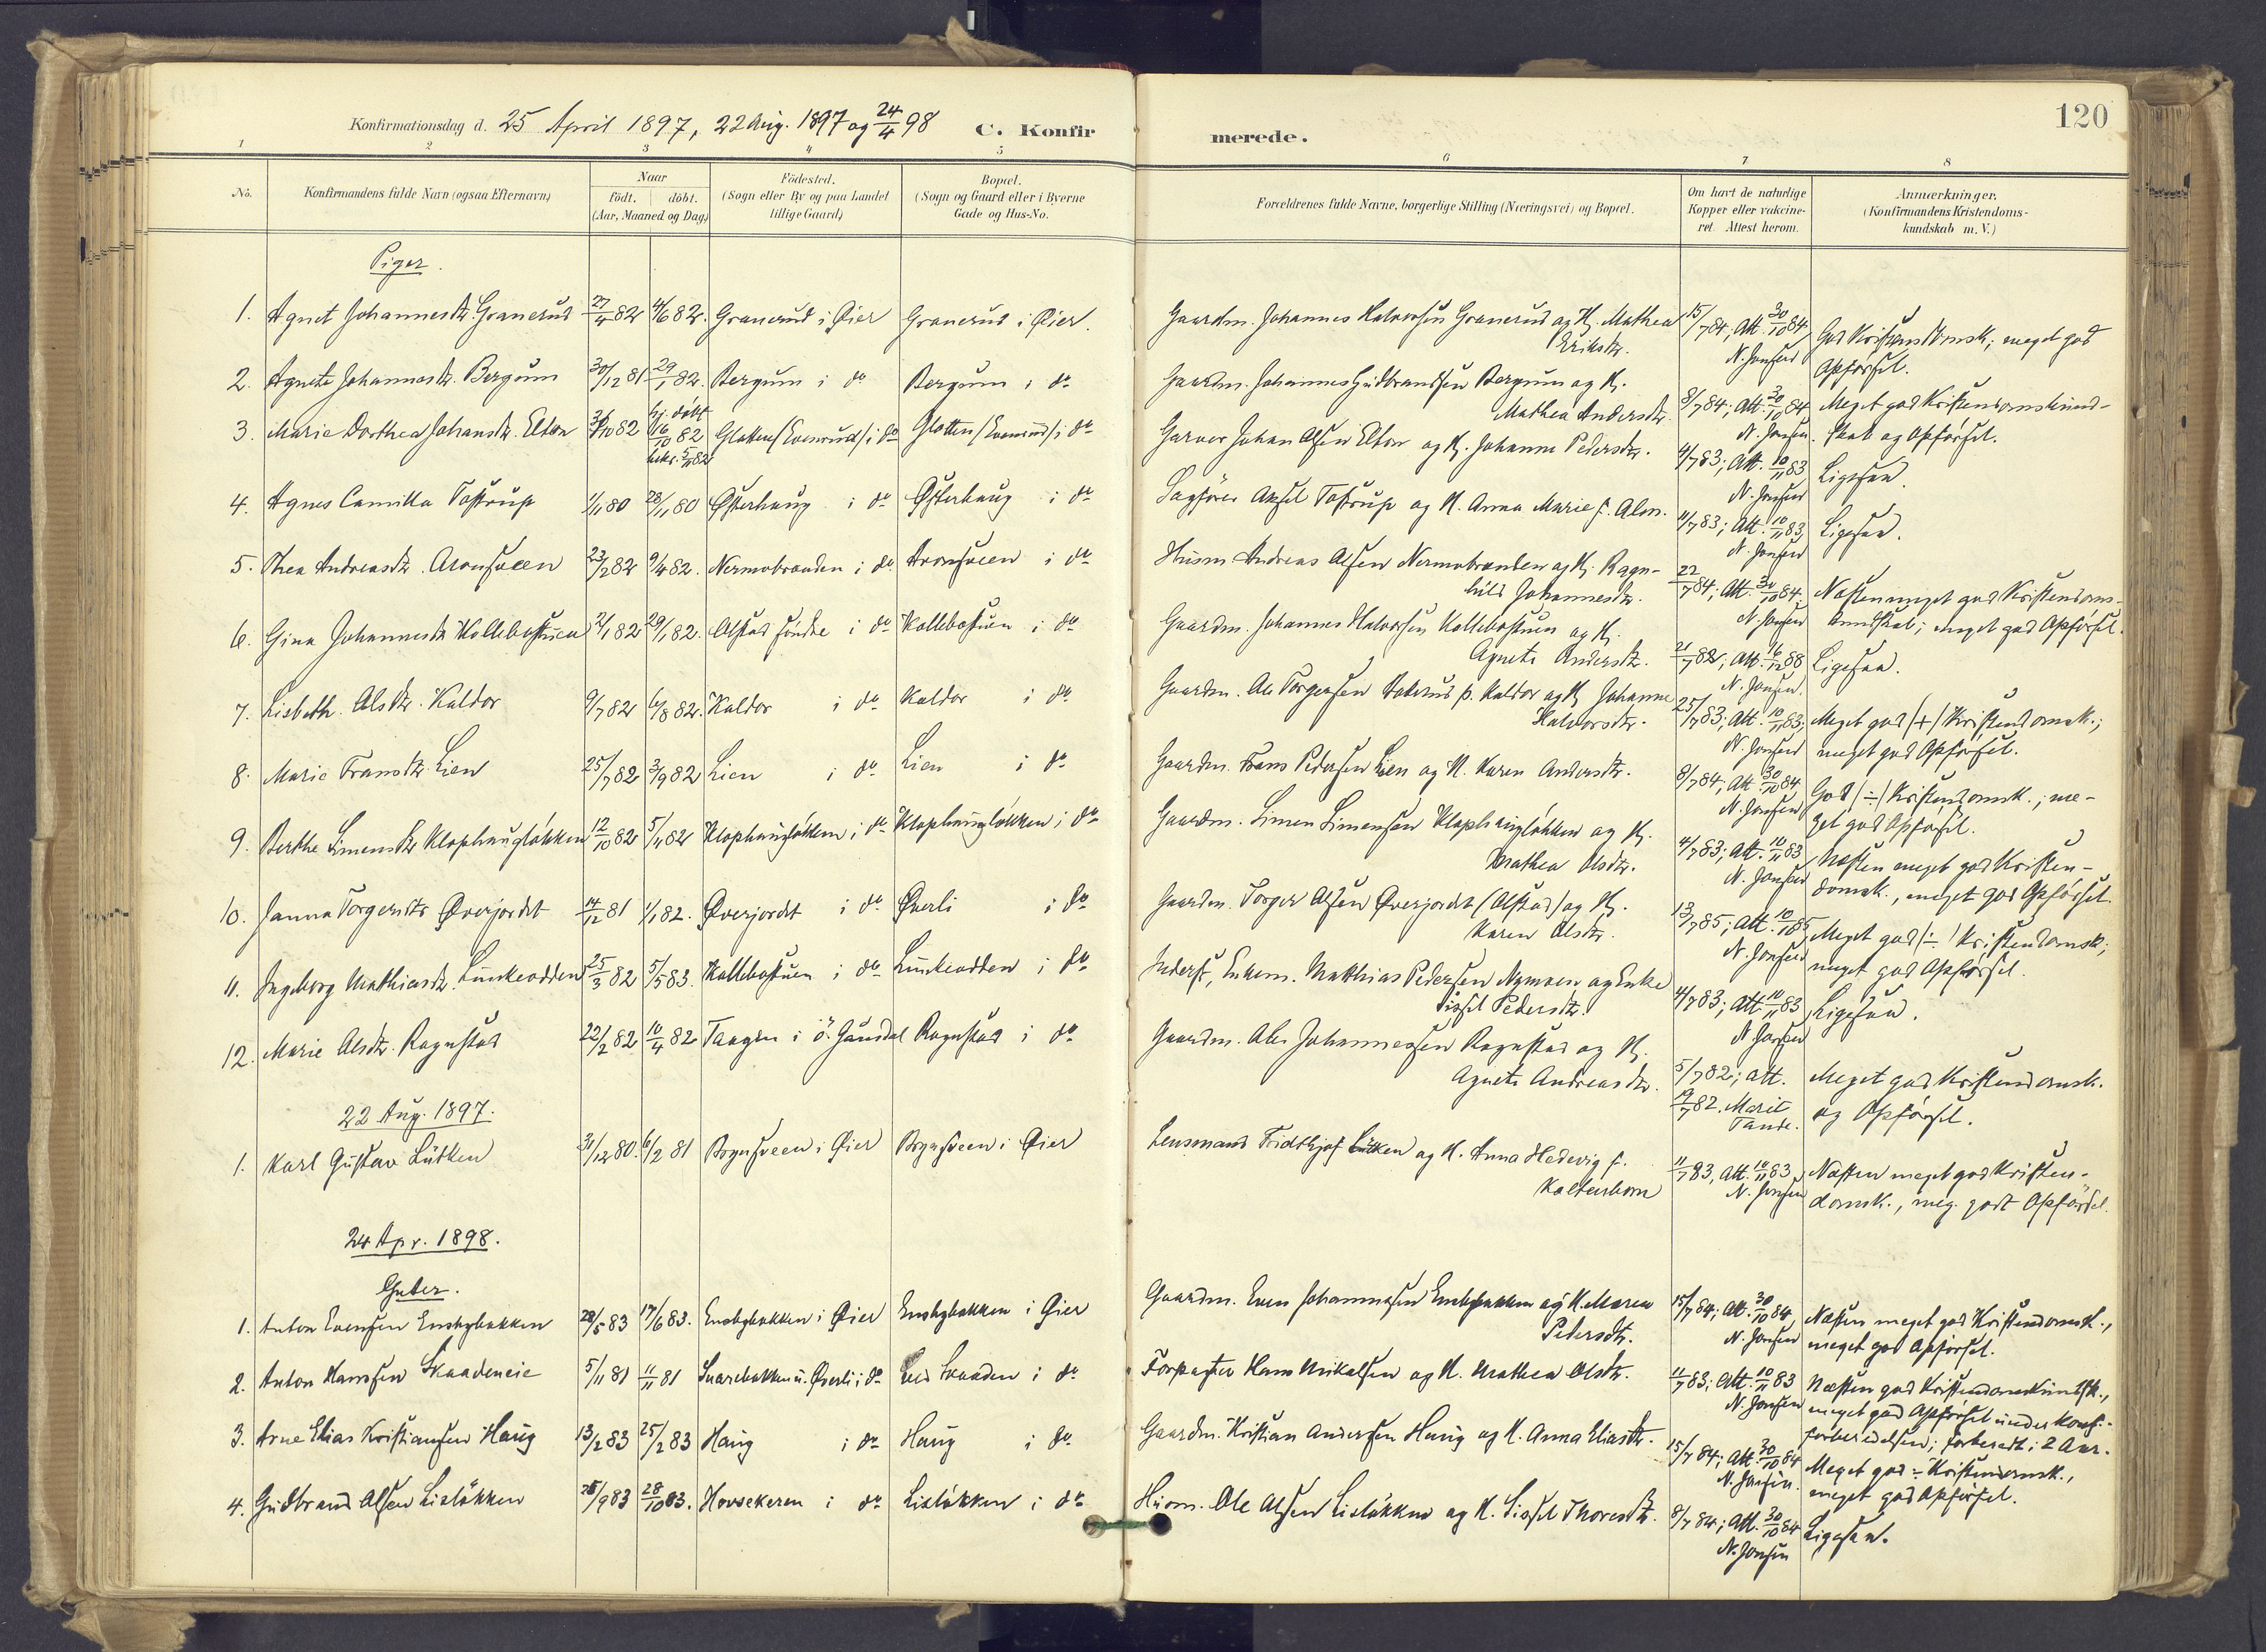 120
Konfirmationsdag d. 25 April 1897, 22 Aug. 1897 og 24/4 98 C. Konfirmerede.
1 2 3 4 5 6 7 8
No. Konfirmandens fulde Navn (ogsaa Efternavn) Naar födt. döbt. (Aar, Maaned og Dag) Födested. (Sogn eller By og paa Landet tillige Gaard) Bopæl. (Sogn og Gaard eller i Byerne Gade og Hus-No. Forældrenes fulde Navne, borgerlige Stilling (Næringsvei) og Bopæl. Om havt de naturlige Kopper eller vakcineret. Attest herom. Anmærkninger. (Konfirmandens Kristendomskundskab m. V.)
Piger.
1. Agnet Johannesdtr. Granerud 27/4 82 4/6 82. Granerud i Øier Granerud i Øier. Gaardm. Johannes Halvorsen Granerud og H. Mathea Eriksdtr. 15/7 84; Att. 30/10 84 N. Jonsen God Kristendomsk; meget god Opförsel.
2. Agnete Johannesdtr. Bergum 30/12 81 29/1 82. Bergum i do Bergum i do Gaardm. Johannes Gudbrandsen Bergum og H. Mathea Andersdtr. 8/7 84; Att. 30/10 84 N. Jonsen. Meget god Kristendomskundskab og Opförsel.
3. Marie Dorthea Johansdtr. Elton hj. döbt 16/10 82 bekr. 5/11 82 Glatten i do Glatten i do Garver Johan Olsen Elton og H. Johanne Pedersdtr. 4/7 83; Att. 10/11 83 N. Jonsen Ligesaa.
4. Agnes Camilla Tostrup 1/1 80 28/11 80 Østerhaug i do Østerhaug i do Sagförer Axsel Tostrup og H. Anna Marie f. Alm. 11/7 83; Att. 10/11 83 N. Jonsen Ligesaa.
5. Thea Andreasdtr. Aronsveen 23/2 82 9/4 82. Nermobraaden i do Aronsveen i do Husm. Andreas Olsen Nermobraaden og H. Ragnhild Johannesdtr. 22/7 84; Att. 30/10 84. N. Jonsen Næsten meget god Kristendomskundskab; meget god Opförsel.
6. Gina Johannesdtr Kollebostuen 2/1 82 29/1 82. Olstad söndre i do Kollebostuen i do Gaardm. Johannes Halvorsen Kollebostuen og H. Agnete Andersdtr. 21/7 82; Att. 16/12 88 N. Jonsen. Ligesaa.
7. Lisbeth Olsdtr. Kaldor 9/7 82 6/8 82. Kaldor i do Kaldor i do Gaardm. Ole Torgersen p. Kaldor og H. Johanne Halvorsdtr. 25/7 83; Att. 10/11 83; N. Jonsen Meget god (+) Kristendomsk.; meget god Opförsel.
8. Marie Fransdtr. Lien 25/7 82 3/9 82 Lien i do Lien i do Gaardm. Frans Pedersen Lien og H. Karen Andersdtr. 8/7 84; Att. 30/10 84, N. Jonsen God (÷) Kristendomsk.; meget god Opförsel.
9. Berthe Simensdtr Klophauglökken 12/10 82 5/11 82 Klophauglökken i do Klophauglökken i do Gaardm. Simen Simensen Klophauglökken og H. Mathea Olsdtr. 4/7 83; Att. 10/11 83 N. Jonsen Næsten meget god Kristendomsk., meget god Opförsel.
10. Janna Torgersdtr Øverjordet 14/12 81 1/1 82. Øverjordet i do Øverli i do Gaardm. Torger Olsen Øverjordet (Olstad) og H. Karen Olsdtr. 13/7 85; Att. 10/10 85 N. Jonsen Meget god (÷) Kristendomsk; meget god Opförsel.
11. Ingeborg Mathiasdtr. Lunkeodden 25/3 82 5/5 83. Kollebostuen i do Lunkeodden i do Inderst, Enkem. Matthias Pedersen Nymoen og Enke Sissel Pedersdtr. 4/7 83; Att. 10/11 83 N. Jonsen Ligesaa.
12. Marie Olsdtr. Rognstad 22/2 82 10/4 82 Taagen i Ö. Gausdal Rognstad i do Gaardm. Ole Johannessen Rognstad og H. Agnete Andreasdtr. 5/7 82; Att. 19/7 82. Marit Tande. Meget god Kristendomsk. og Opförsel.
22 Aug. 1897.
1. Karl Gustav Lütken 31/12 80. 6/2 81 Brynsveen i Øier Brynsveen i Øier Lensmand Fridthjof Lütken og H. Anna Hedevig f. Kaltenborn 11/7 83, Att. 10/11 83, N. Jonsen Næsten meget god Kristendomsk., meg. godt Opförsel.
24 Apr. 1898.
Gutter.
1. Anton Evensen Ensbybakken 28/5 83 17/6 83. Ensbybakken i Øier Ensbybakken i Øier Gaardm. Even Johannessen Ensbybakken og H. Maren Pedersdtr. 15/7 84; Att. 30/10 84, N. Jonsen Næsten meget god Kristendomsk., meget god Opförsel.
2. Anton Hanssen Skaadeneie 5/11 81 11/11 81 Svarebakken u. Øverli i do Skaaden i do Forpagter Hans Mikalsen og H. Mathea Olsdtr. 11/7 83; Att. 10/11 83 N. Jonsen Næsten god Kristendomskundsk., meget god Opförsel under Konf.forberedelsen; forberedt i 2 Aar.
3. Arne Elias Kristiansen Haug 13/2 83 25/2 83 Haug i do Haug i do Gaardm. Kristian Andersen Haug og H. Anna Eliasdtr. 15/7 84; Att. 30/10 84 N. Jonsen. Meget god ÷ Kristendomsk., meget god Opförsel.
4. Gudbrand Olsen Lislökken 28/10 83. Hovsekeren i do Lislökken i do Husm. Ole Olsen Lislökken og H. Sissel Thoresdtr. 8/7 84; Att. 30/10 84 N. Jonsen Ligesaa.